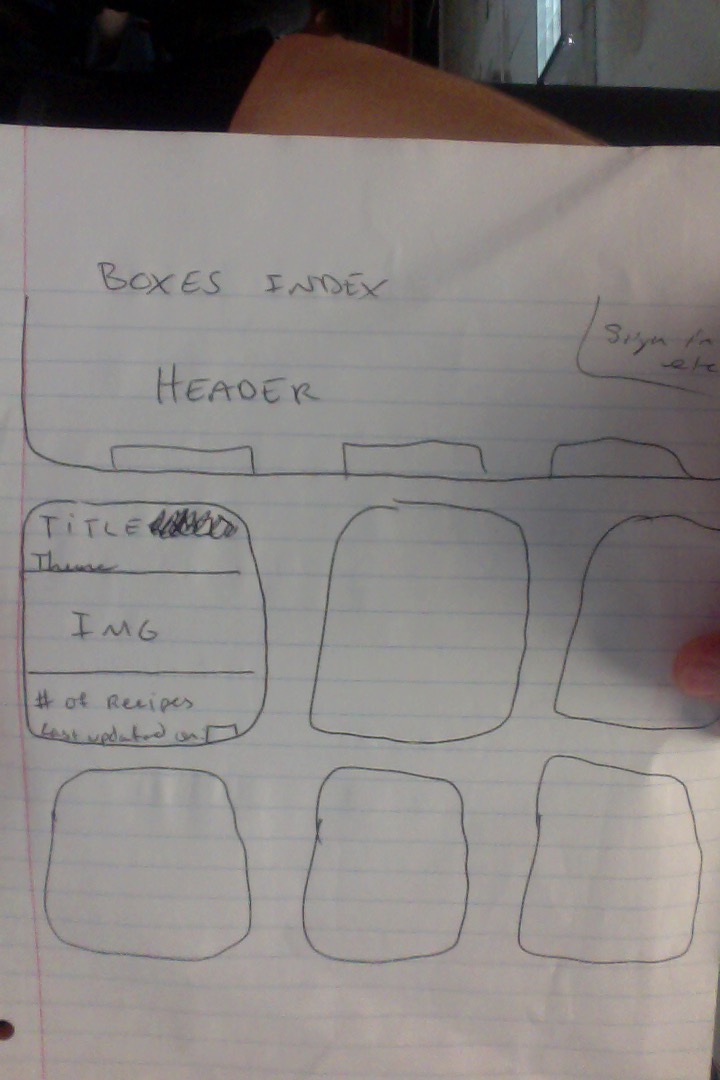 BOXES INDEX
Sign in
etc
HEADER
TITLE
Theme
IMG
# of Recipes
Last updated on